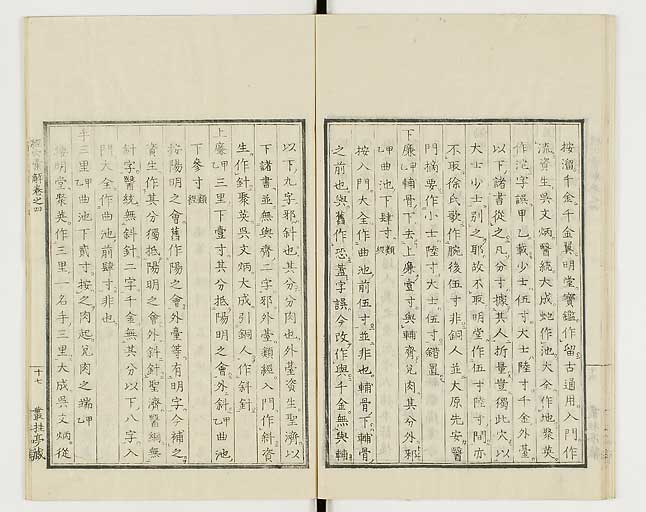 按溜千金千金翼明堂寶鑑作留古通用入門作
流資生吳文炳醫統大成虵作池大全作地聚英
作沱字誤甲乙載少士伍寸大士陸寸千金外臺
以下諸書從之凡分寸據其人折量豈獨此穴以
大士少士別之耶故不取明堂作伍寸陸寸間亦
不取徐氏歌作腕後伍寸非銅人並大原先安醫
門摘要作小士陸寸大士伍寸錯置
下廉甲輔骨下去上廉壹寸與輔齊兌肉其分外邪
乙甲曲池下肆寸類經
按入門大全作曲池前伍寸並非也輔骨下輔骨
之前也與舊作恐蓋字誤今改作與千金無與輔
以下九字邪斜也其分分肉也外臺資生聖濟以
下諸書並無與齊二字邪外臺類經入門作斜資
生作針聚英吳文炳大成引銅人作斜針
上廉甲三里下壹寸其分抵陽明之會外斜乙甲曲池
下參寸類經
按陽明之會舊作陽之會外臺等有明字今補之
資生作其分獨抵陽明之會外斜針聖濟醫綱無
斜字醫統無斜針二字千金無其分以下八字入
門大全作曲池前肆寸非也
手三里乙甲曲池下貳寸按之肉起兌肉之端乙甲
按明堂聚英作三里一名手三里大成吳文炳從
解卷之四
十七
叢桂亭藏